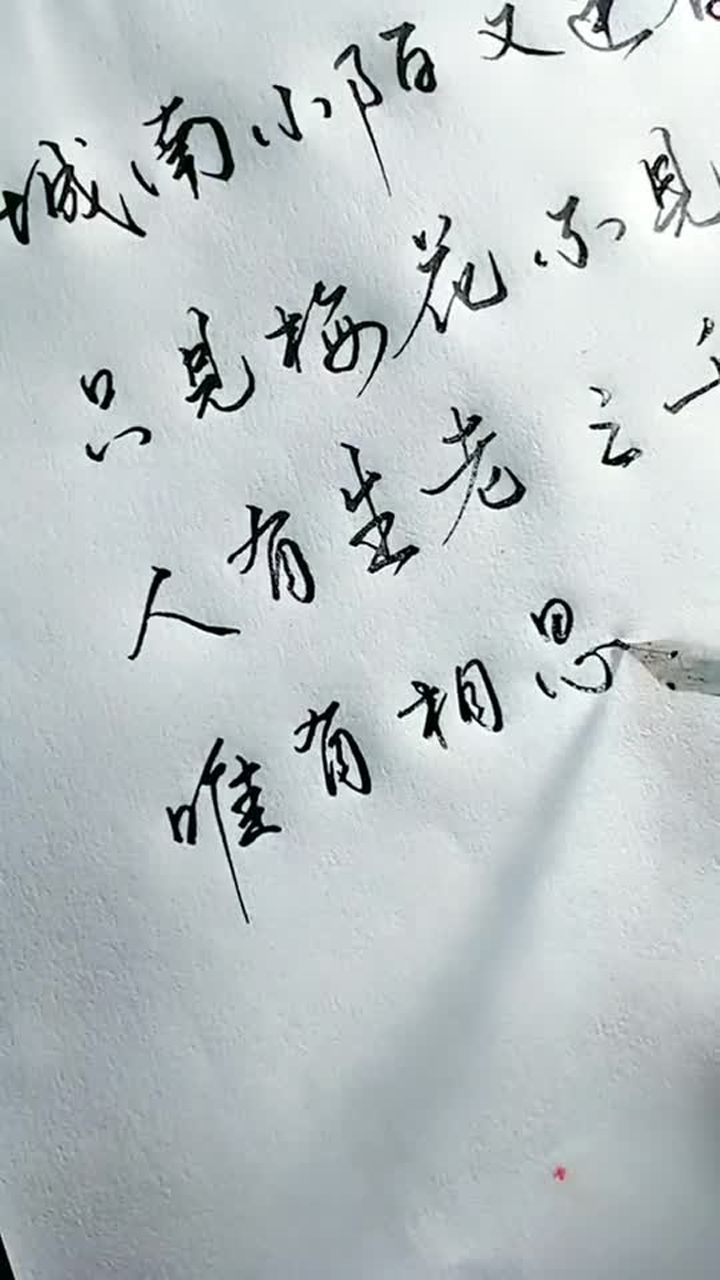 城南小陌又逢
只见梅花不见
人有生老三
唯有相思